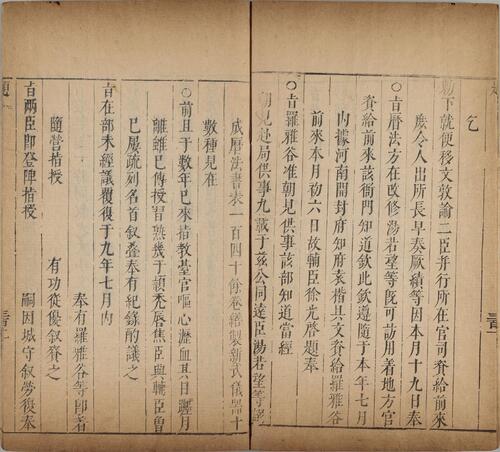 乞
勑下就便移文敦諭二臣并行所在官司資給前來
庶令人出所長早奏厥績等因本月十九日奉
○旨曆法方在改修湯若望等既可訪用着地方官
資給前來該衙門知道欽此欽遵隨于本年七月
內據河南開封府知府袁楷具文資給羅雅谷
前來本月初六日故輔臣徐光啓題奉
○旨羅雅谷准朝見供事該部知道當經
朝見赴局供事九載于茲公同遠臣湯若望等譯
成曆法書表一百四十餘卷繕製新式儀器十
數種見在
○前且于數年已來指教臺官嘔心瀝血其日躔月
離雖已傳授習熟幾于穎禿唇焦臣與輔臣魯
已屢疏列名首叙叠奉有紀錄酌議之
旨在部未經議覆復于九年七月內
奉有羅雅谷等即着
隨營指授
有功從優叙賚之
旨兩臣即登陴指授
嗣因城守叙勞復奉